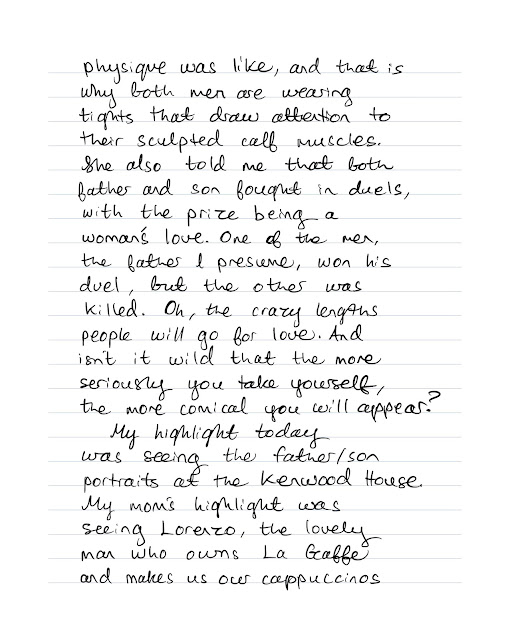 physique was like, and that is
why both men are wearing
tights that draw attention to
their sculpted calf muscles.
She also told me that both
father and son fought in duels,
with the prize being a
woman's love. One of the men,
the father I presume, won his
duel, but the other was
killed. Oh, the crazy lengths
people will go for love. And
isn't it wild that the more
seriously you take yourself,
the more comical you will appear?
My highlight today
was seeing the father/son
portraits at the Kenwood House.
My mom's highlight was
seeing Lorenzo, the lovely
man who owns La Gaffe
and makes us our cappuccinos